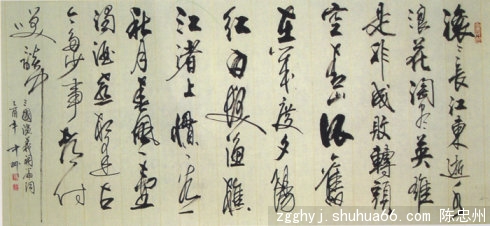 滚〻長江東逝水
浪花淘盡英雄
是非成敗轉頭
空青山依舊
在幾度夕陽
紅白髮漁樵
江渚上慣看
秋月春風一壺
濁酒喜相逢古
今多少事都付
笑談中
三國演義開篇詞
zgghyj.shuhua66.com / 陈忠州